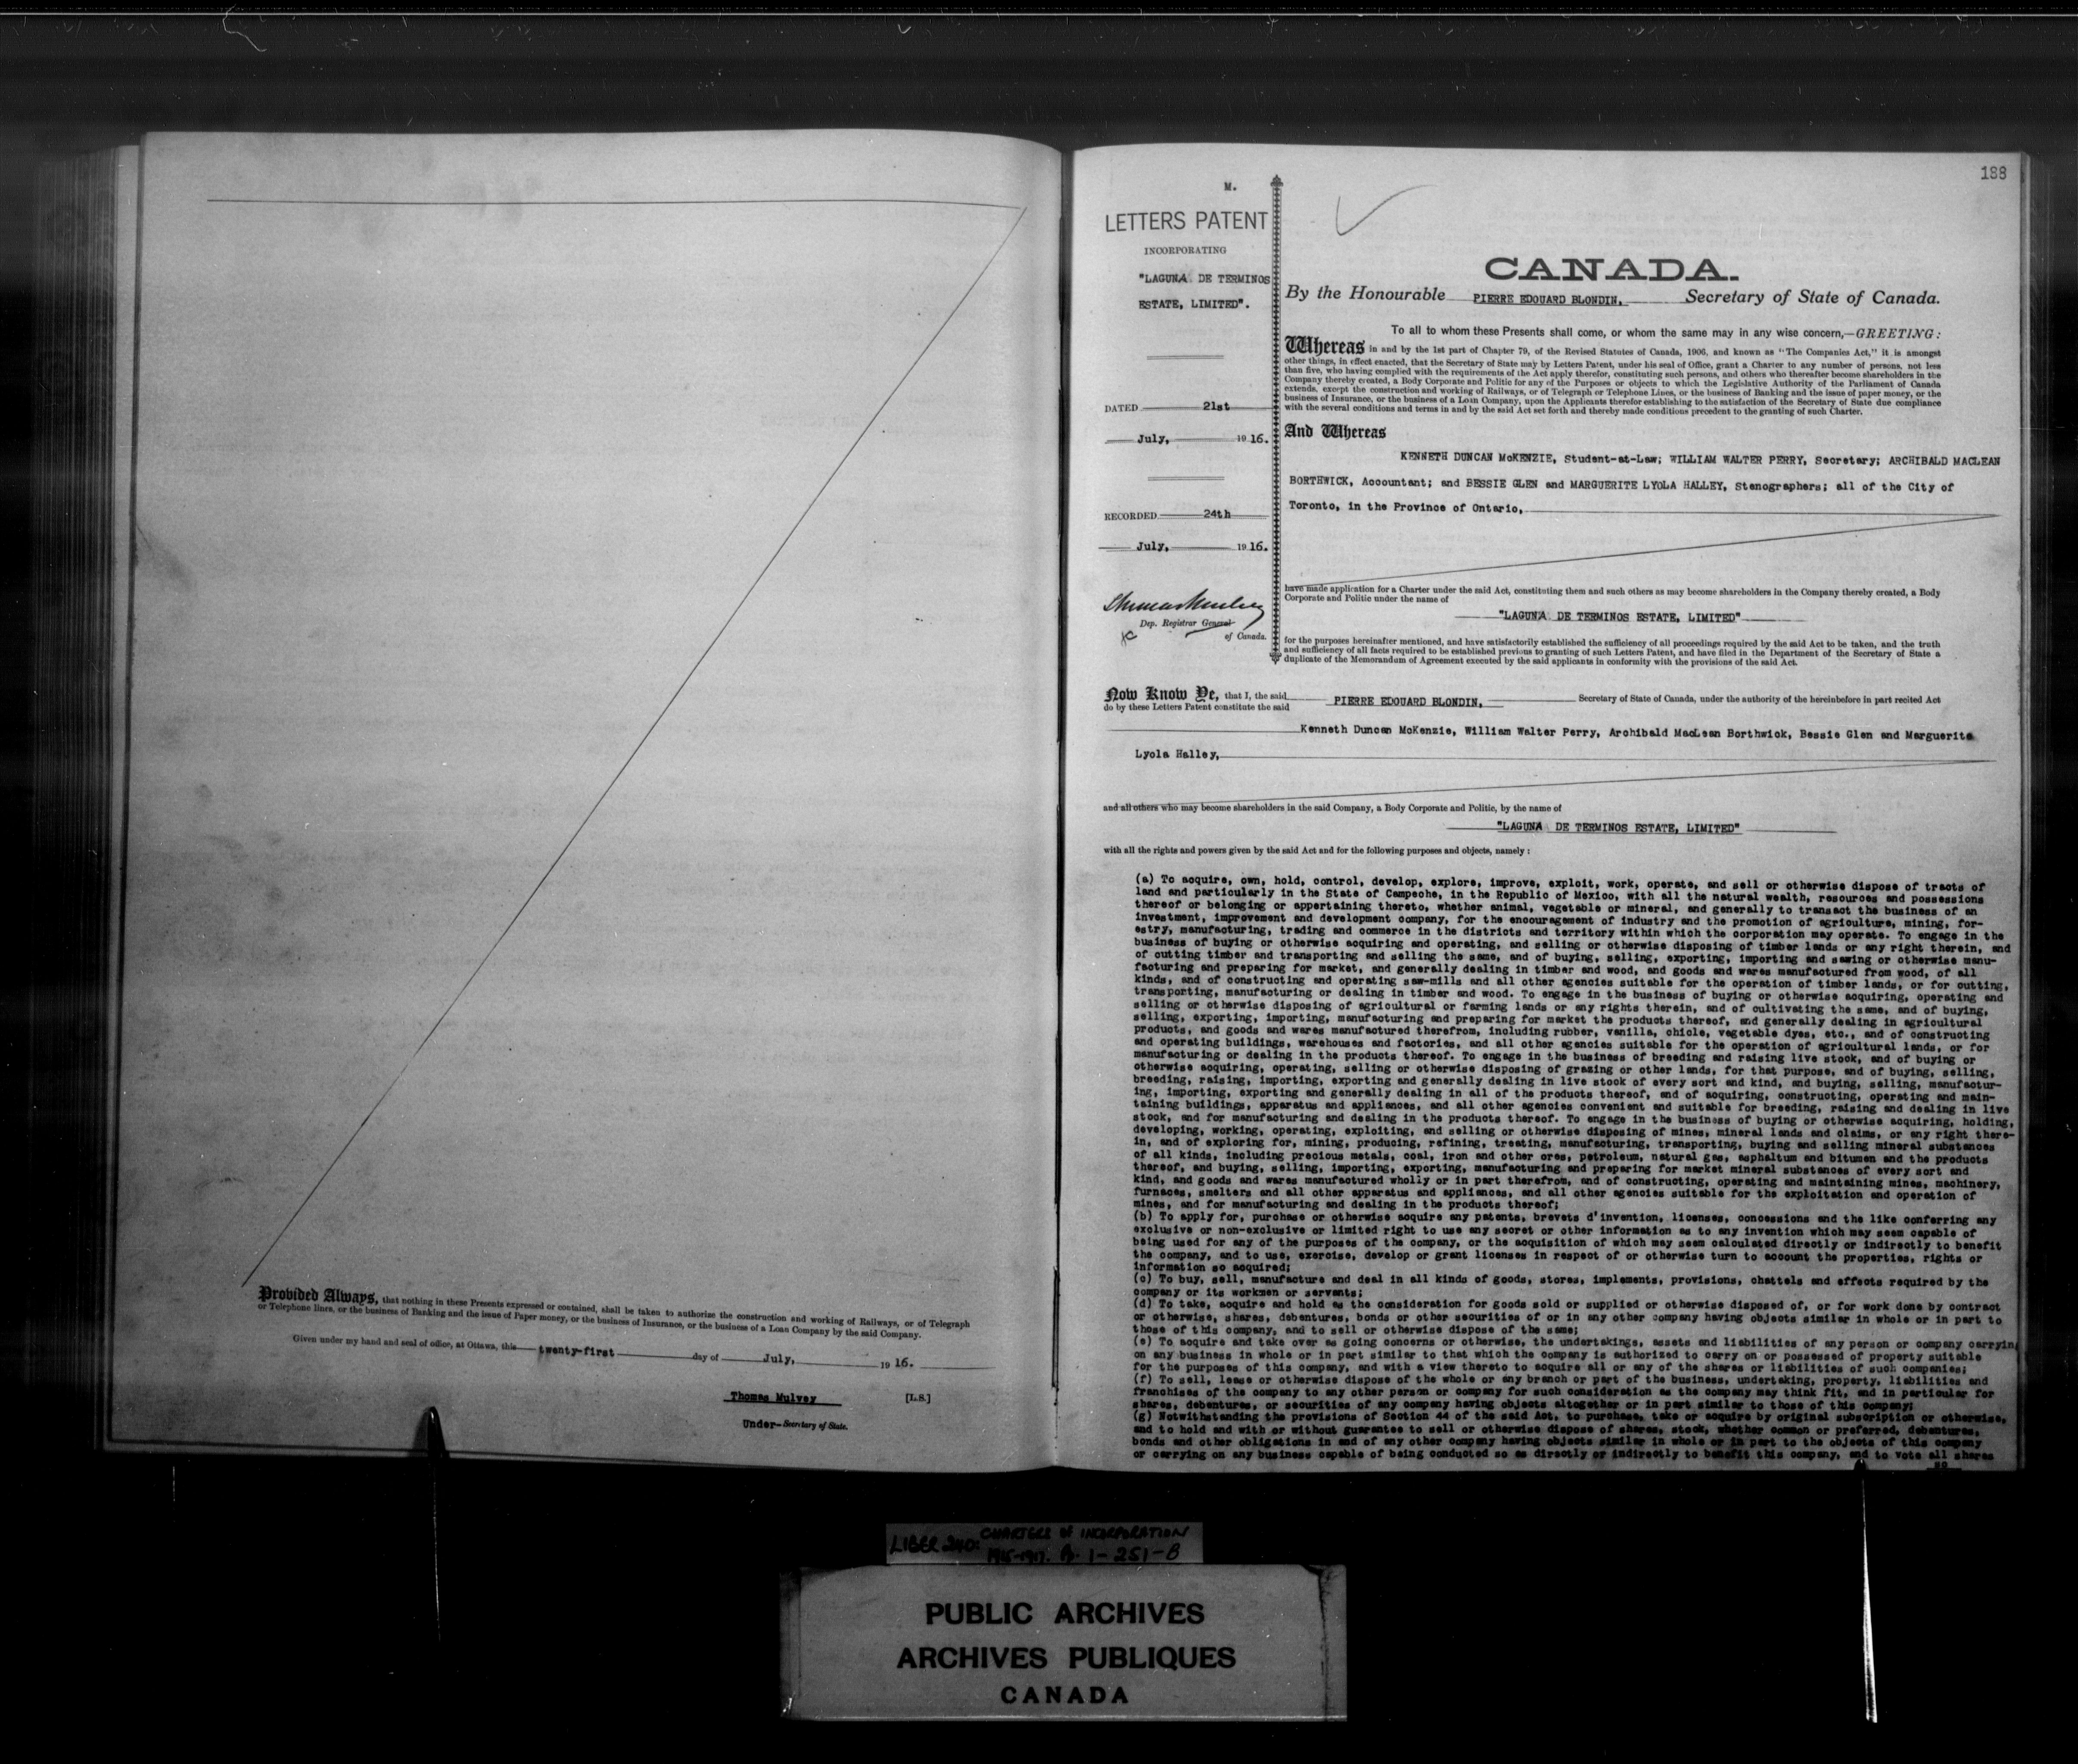 Provided Always, that nothing in these Presents expressed or contained, shall be taken to authorize the construction and working of Railways, or of Telegraph
or Telephone lines, or the business of Banking and the issue of Paper money, or the business of Insurance, or the business of a Loan Company by the said Company.
Given under my hand and seal of office, at Ottawa, this twenty-first day of July, 19 16.
Thomas Mulvey [L.S.]
Under-Secretary of State.
188
M.
LETTERS PATENT
INCORPORATING
"LAGUNA DE TERMINOS
ESTATE, LIMITED".
DATED 21st
July, 19 16.
RECORDED 24th
July, 19 16.
Thomas Mulvey
Dep. Registrar General
of Canada.
CANADA.
By the Honourable PIERRE EDOUARD BLONDIN, Secretary of State of Canada.
To all to whom these Presents shall come, or whom the same may in any wise concern,—GREETING:
Whereas in and by the 1st part of Chapter 79, of the Revised Statutes of Canada, 1906, and known as "The Companies Act," it is amongst
other things, in effect enacted, that the Secretary of State may by Letters Patent, under his seal of Office, grant a Charter to any number of persons, not less
than five, who having complied with the requirements of the Act apply therefor, constituting such persons, and others who thereafter become shareholders in the
Company thereby created, a Body Corporate and Politic for any of the Purposes or objects to which the Legislative Authority of the Parliament of Canada
extends, except the construction and working of Railways, or of Telegraph or Telephone Lines, or the business of Banking and the issue of paper money, or the
business of Insurance, or the business of a Loan Company, upon the Applicants therefor establishing to the satisfaction of the Secretary of State due compliance
with the several conditions and terms in and by the said Act set forth and thereby made conditions precedent to the granting of such Charter.
And Whereas
KENNETH DUNCAN McKENZIE, Student-at-Law; WILLIAM WALTER PERRY, Secretary; ARCHIBALD MACLEAN
BORTHWICK, Accountant; and BESSIE GLEN and MARGUERITE LYOLA HALLEY, Stenographers; all of the City of
Toronto, in the Province of Ontario,
have made application for a Charter under the said Act, constituting them and such others as may become shareholders in the Company thereby created, a Body
Corporate and Politic under the name of
"LAGUNA DE TERMINOS ESTATE, LIMITED"
for the purposes hereinafter mentioned, and have satisfactorily established the sufficiency of all proceedings required by the said Act to be taken, and the truth
and sufficiency of all facts required to be established previous to granting of such Letters Patent, and have filed in the Department of the Secretary of State a
duplicate of the Memorandum of Agreement executed by the said applicants in conformity with the provisions of the said Act.
Now Know Ye, that I, the said PIERRE EDOUARD BLONDIN, Secretary of State of Canada, under the authority of the hereinbefore in part recited Act
do by these Letters Patent constitute the said
Kenneth Duncan McKenzie, William Walter Perry, Archibald MacLean Borthwick, Bessie Glen and Marguerite
Lyola Halley,
and all others who may become shareholders in the said Company, a Body Corporate and Politic, by the name of
"LAGUNA DE TERMINOS ESTATE, LIMITED"
with all the rights and powers given by the said Act and for the following purposes and objects, namely :
(a) To acquire, own, hold, control, develop, explore, improve, exploit, work, operate, and sell or otherwise dispose of tracts of
land and particularly in the State of Campeche, in the Republic of Mexico, with all the natural wealth, resources and possessions
thereof or belonging or appertaining thereto, whether animal, vegetable or mineral, and generally to transact the business of an
investment, improvement and development company, for the encouragement of industry and the promotion of agriculture, mining, for-
estry, manufacturing, trading and commerce in the districts and territory within which the corporation may operate. To engage in the
business of buying or otherwise acquiring and operating, and selling or otherwise disposing of timber lands or any right therein, and
of cutting timber and transporting and selling the same, and of buying, selling, exporting, importing and sawing or otherwise manu-
facturing and preparing for market, and generally dealing in timber and wood, and goods and wares manufactured from wood, of all
kinds, and of constructing and operating saw-mills and all other agencies suitable for the operation of timber lands, or for cutting,
transporting, manufacturing or dealing in timber and wood. To engage in the business of buying or otherwise acquiring, operating and
selling or otherwise disposing of agricultural or farming lands or any rights therein, and of cultivating the same, and of buying,
selling, exporting, importing, manufacturing and preparing for market the products thereof, and generally dealing in agricultural
products, and goods and wares manufactured therefrom, including rubber, vanilla, chicle, vegetable dyes, etc., and of constructing
and operating buildings, warehouses and factories, and all other agencies suitable for the operation of agricultural lands, or for
manufacturing or dealing in the products thereof. To engage in the business of breeding and raising live stock, and of buying or
otherwise acquiring, operating, selling or otherwise disposing of grazing or other lands, for that purpose, and of buying, selling,
breeding, raising, importing, exporting and generally dealing in live stock of every sort and kind, and buying, selling, manufactur-
ing, importing, exporting and generally dealing in all of the products thereof, and of acquiring, constructing, operating and main-
taining buildings, apparatus and appliances, and all other agencies convenient and suitable for breeding, raising and dealing in live
stock, and for manufacturing and dealing in the products thereof. To engage in the business of buying or otherwise acquiring, holding,
developing, working, operating, exploiting, and selling or otherwise disposing of mines, mineral lands and claims, or any right there-
in, and of exploring for, mining, producing, refining, treating, manufacturing, transporting, buying and selling mineral substances
of all kinds, including precious metals, coal, iron and other ores, petroleum, natural gas, asphaltum and bitumen and the products
thereof, and buying, selling, importing, exporting, manufacturing and preparing for market mineral substances of every sort and
kind, and goods and wares manufactured wholly or in part therefrom, and of constructing, operating and maintaining mines, machinery,
furnaces, smelters and all other apparatus and appliances, and all other agencies suitable for the exploitation and operation of
mines, and for manufacturing and dealing in the products thereof;
(b) To apply for, purchase or otherwise acquire any patents, brevets d'invention, licenses, concessions and the like conferring any
exclusive or non-exclusive or limited right to use any secret or other information as to any invention which may seem capable of
being used for any of the purposes of the company, or the acquisition of which may seem calculated directly or indirectly to benefit
the company, and to use, exercise, develop or grant licenses in respect of or otherwise turn to account the properties, rights or
information so acquired;
(c) To buy, sell, manufacture and deal in all kinds of goods, stores, implements, provisions, chattels and effects required by the
company or its workmen or servants;
(d) To take, acquire and hold as the consideration for goods sold or supplied or otherwise disposed of, or for work done by contract
or otherwise, shares, debentures, bonds or other securities of or in any other company having objects similar in whole or in part to
those of this company, and to sell or otherwise dispose of the same;
(e) To acquire and take over as going concerns or otherwise, the undertakings, assets and liabilities of any person or company carryin
on any business in whole or in part similar to that which the company is authorized to carry on or possessed of property suitable
for the purposes of this company, and with a view thereto to acquire all or any of the shares or liabilities of such companies;
(f) To sell, lease or otherwise dispose of the whole or any branch or part of the business, undertaking, property, liabilities and
franchises of the company to any other person or company for such consideration as the company may think fit, and in particular for
shares, debentures, or securities of any company having objects altogether or in part similar to those of this company;
(g) Notwithstanding the provisions of Section 44 of the said Act, to purchase, take or acquire by original subscription or otherwise,
and to hold and with or without guarantee to sell or otherwise dispose of shares, stock, whether common or preferred, debentures,
bonds and other obligations in and of any other company having objects similar in whole or in part to the objects of this company
or carrying on any business capable of being conducted so as directly or indirectly to benefit this company, and to vote all shares
so
LIBER 240: CHARTERS OF INCORPORATION
1915-1917. 1-251-B
PUBLIC ARCHIVES
ARCHIVES PUBLIQUES
CANADA